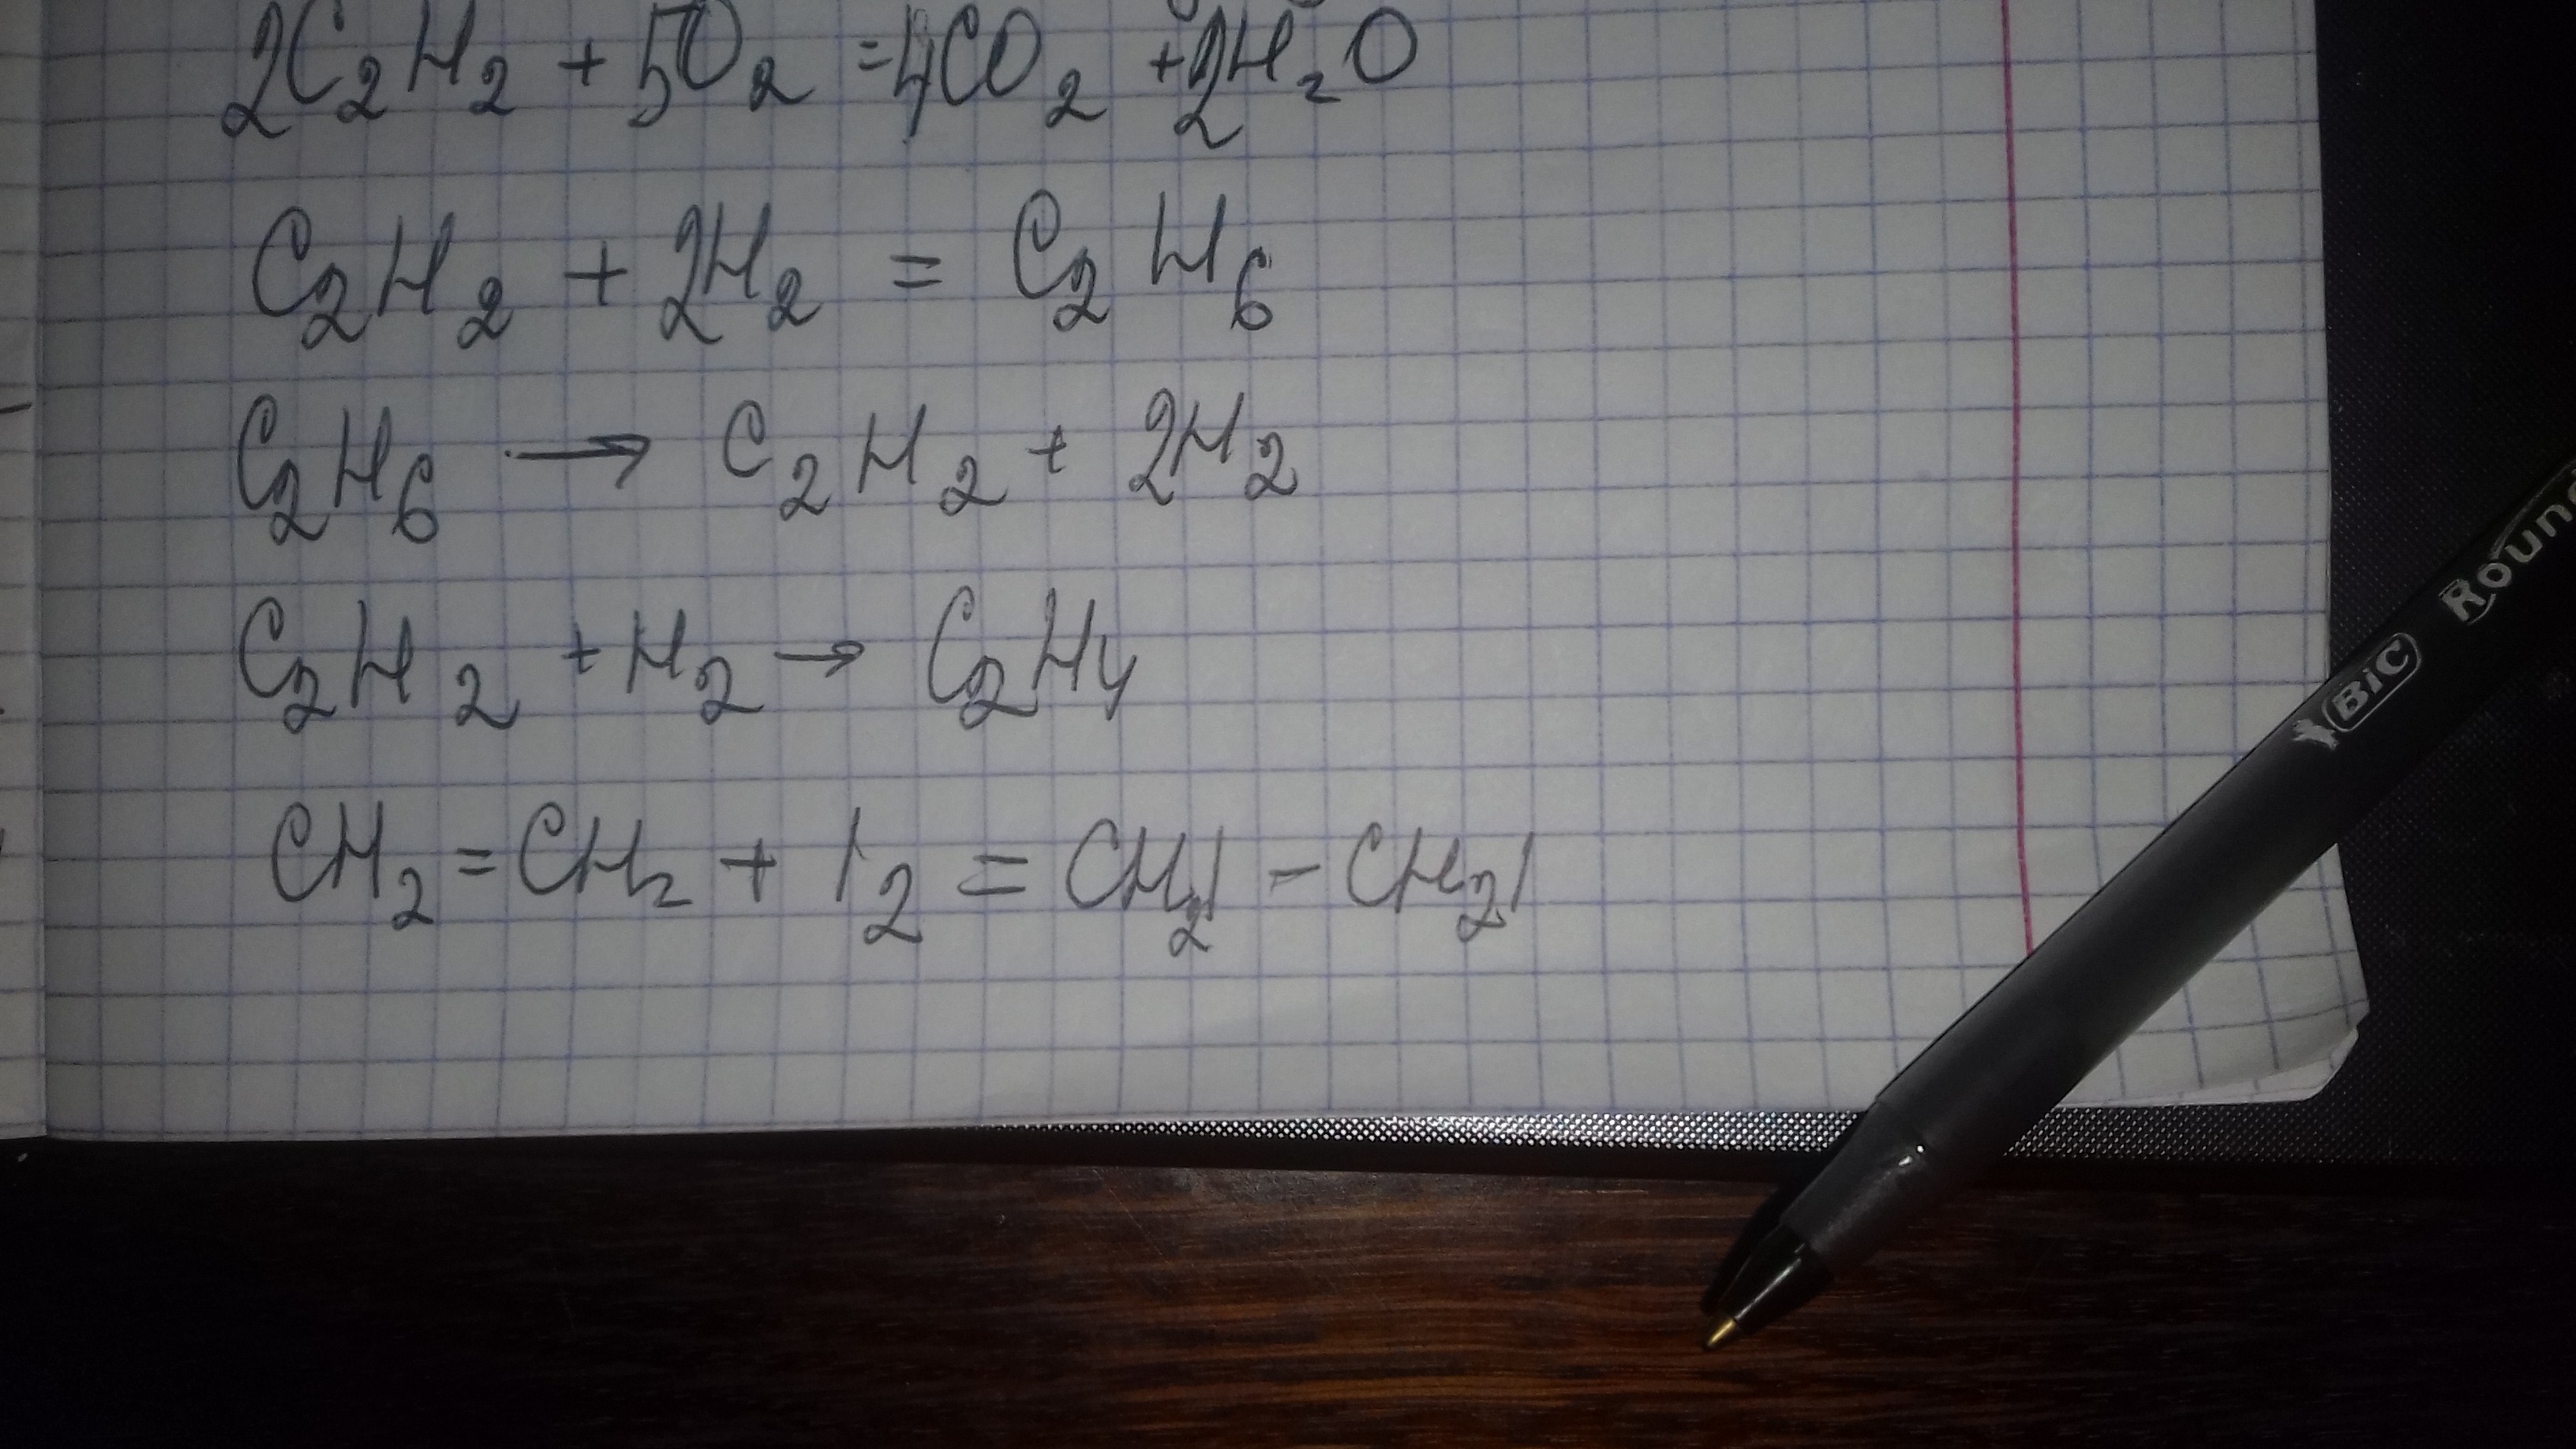 2C₂H₂ + 5O₂ = 4CO₂ + 2H₂O
C₂H₂ + 2H₂ = C₂H₆
C₂H₆ → C₂H₂ + 2H₂
C₂H₂ + H₂ → C₂H₄
CH₂ = CH₂ + I₂ = CH₂I - CH₂I
BIC Round